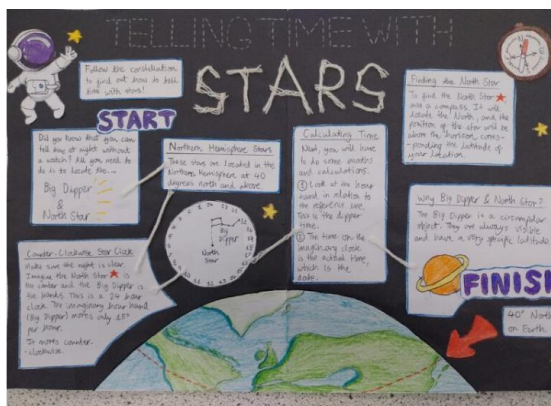 TELLING TIME WITH
STARS
Follow the constellation
to find out how to tell
time with stars!
START
Did you know that you can
tell time at night without
a watch? All you need to
do is to locate the...
Big Dipper
&
North Star
Northern Hemisphere Stars
These stars are located in the
Northern Hemisphere at 40
degrees north and above.
Counter-Clockwise Star Clock
Make sure the night is clear.
Imagine the North Star
is
the center and the Big Dipper is
the hands. This is a 24 hour
clock. The imaginary hour hand
(Big Dipper) moves only 15°
per hour.
It moves counter-
clockwise.
Big
Dipper
North
Star
Calculating Time
Next, you will have
to do some maths
and calculations.
① Look at the hour
hand in relation to
the reference line.
This is the dipper
time.
② The time on the
imaginary clock
is the actual time,
which is the
Finding the North Star
To find the North Star
use a compass. It will
locate the North, and the
position of the star will be
above the horizon, corres-
ponding the latitude of
your location.
Why Big Dipper & North Star?
The Big Dipper is a circumpolar
object. They are always visible
and have a very specific latitude
FINISH
40° North
on Earth.